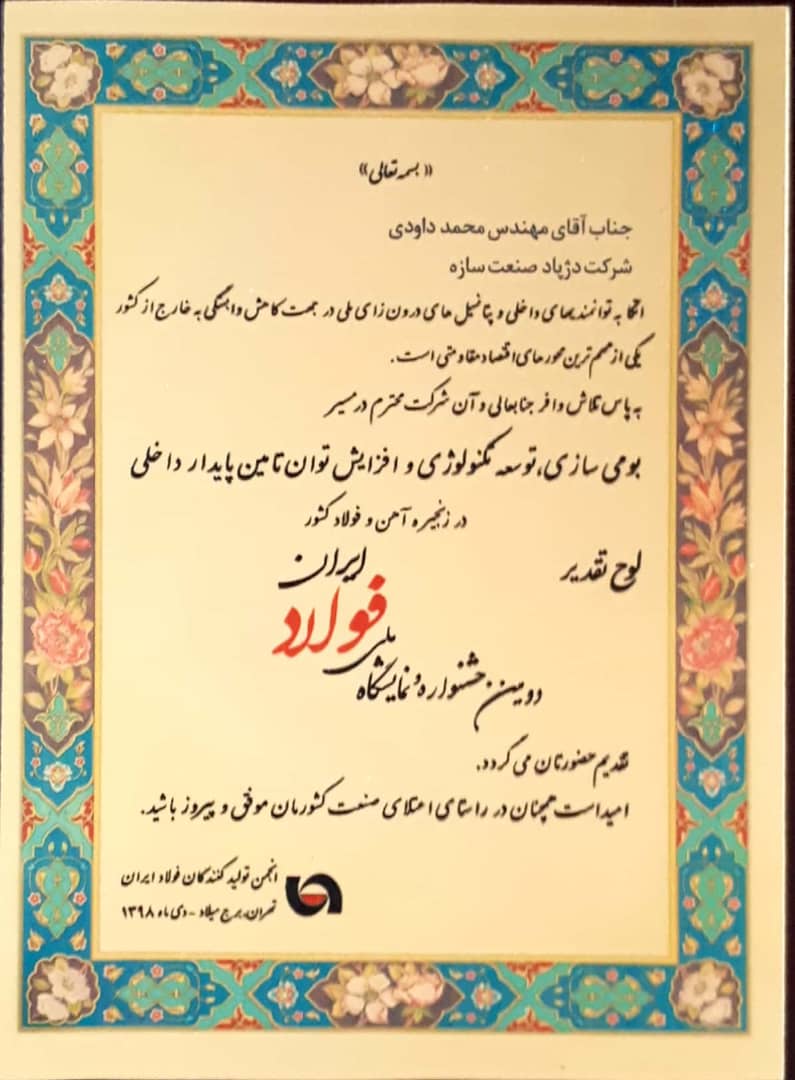 « بسمه تعالی »
جناب آقای مهندس محمد داودی
شرکت دژپاد صنعت سازه
اتکا به توانمندیهای داخلی و پتانسیل های درون زای ملی در جهت کاهش وابستگی به خارج از کشور
یکی از مهم ترین محورهای اقتصاد مقاومتی است.
به پاس تلاش وافر جنابعالی و آن شرکت محترم در مسیر
بومی سازی، توسعه تکنولوژی و افزایش توان تامین پایدار داخلی
در زنجیره آهن و فولاد کشور
لوح تقدیر
دومین جشنواره و نمایشگاه ملی فولاد ایران
تقدیم حضورتان می گردد.
امید است همچنان در راستای اعتلای صنعت کشورمان موفق و پیروز باشید.
انجمن تولید کنندگان فولاد ایران
تهران، برج میلاد - دی ماه ۱۳۹۸